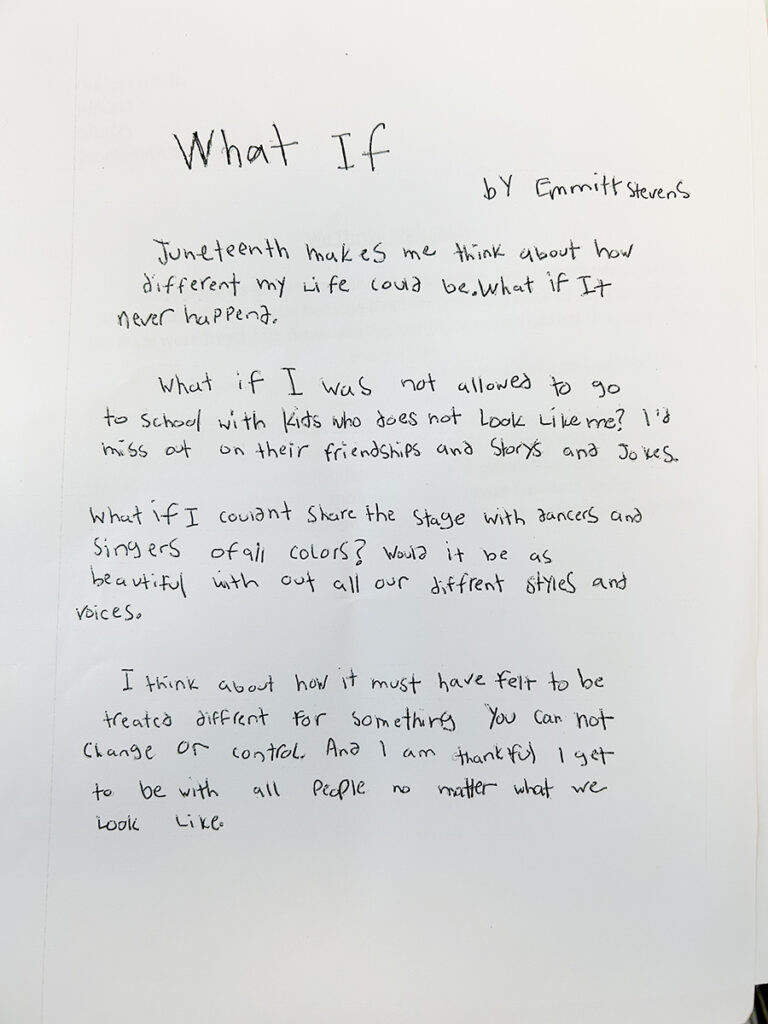 What If
by Emmitt Stevens
Juneteenth makes me think about how
different my Life could be. What if It
never happend.
What if I was not allowed to go
to school with kids who does not Look Like me? I'd
miss out on their friendships and Storys and Jokes.
What if I couldnt share the stage with dancers and
Singers of all colors? Would it be as
beautiful with out all our diffrent styles and
voices.
I think about how it must have felt to be
treated diffrent for something You can not
change or control. And I am thankful I get
to be with all People no matter what we
Look Like.